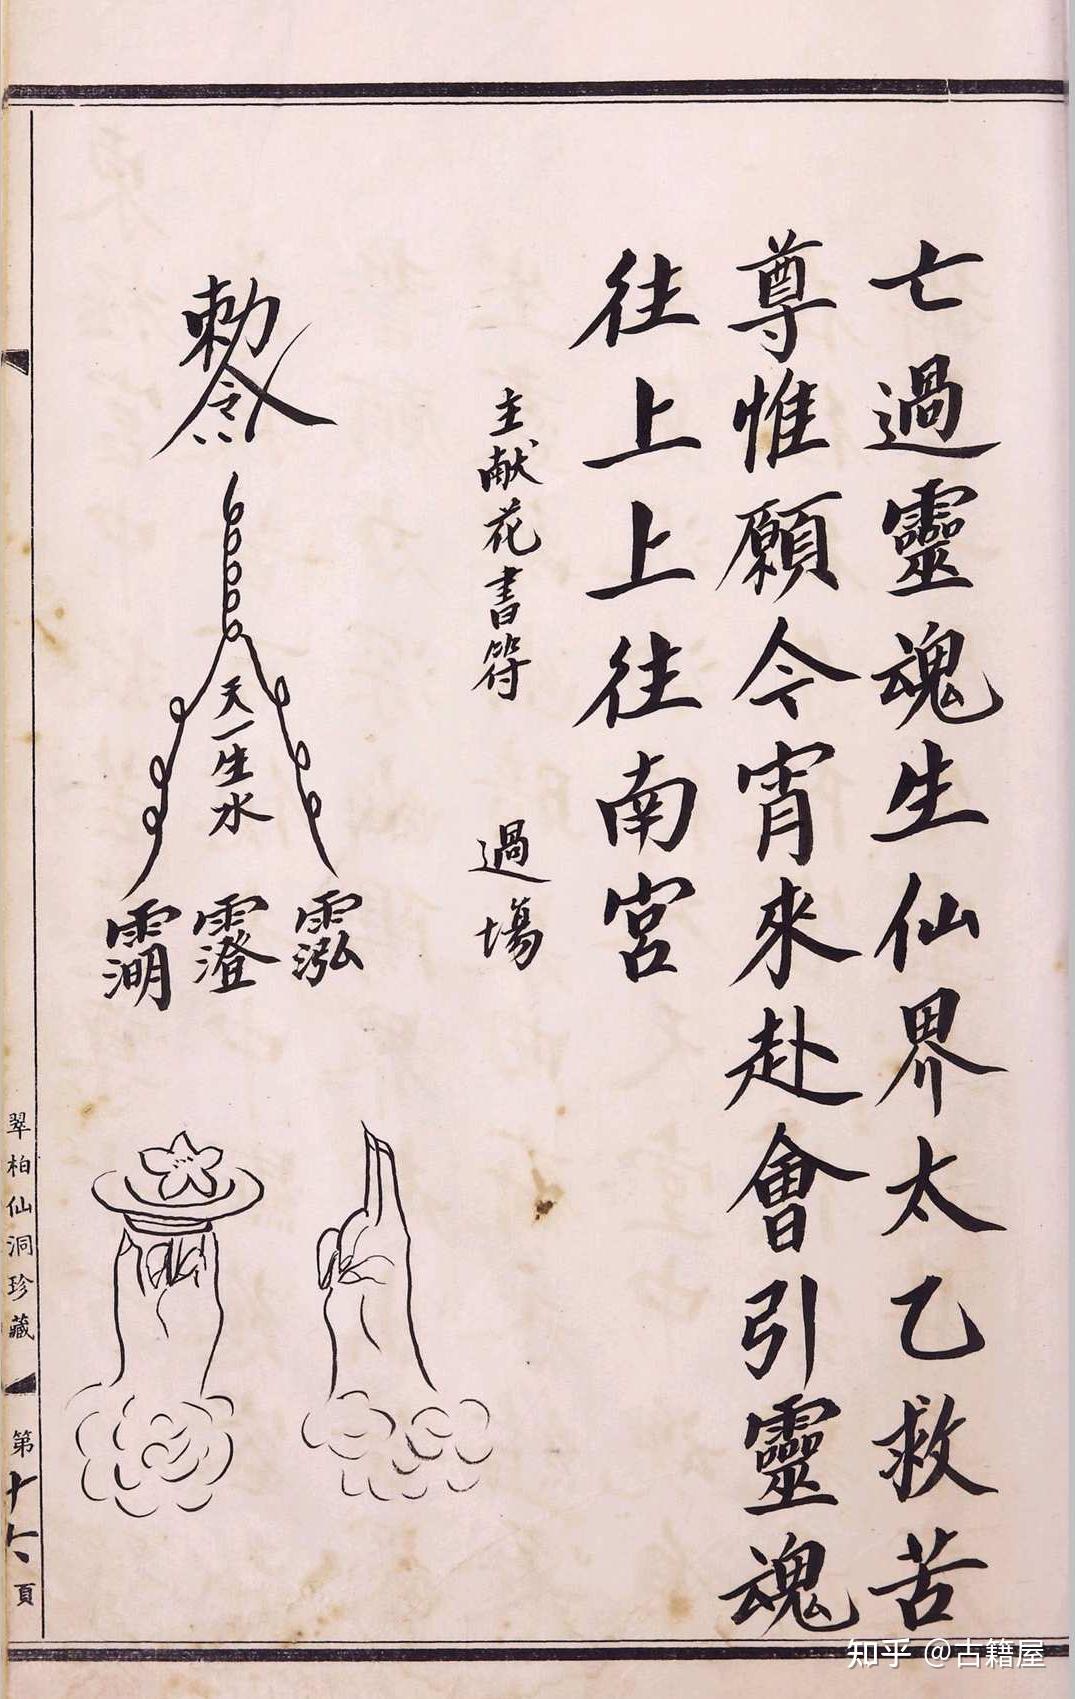 亡過靈魂生仙界太乙救苦
尊惟願今宵來赴會引靈魂
往上上往南宮
主献花書符 過場
勅令
天一生水
翠柏仙洞珍藏
第十六頁
知乎 @古籍屋